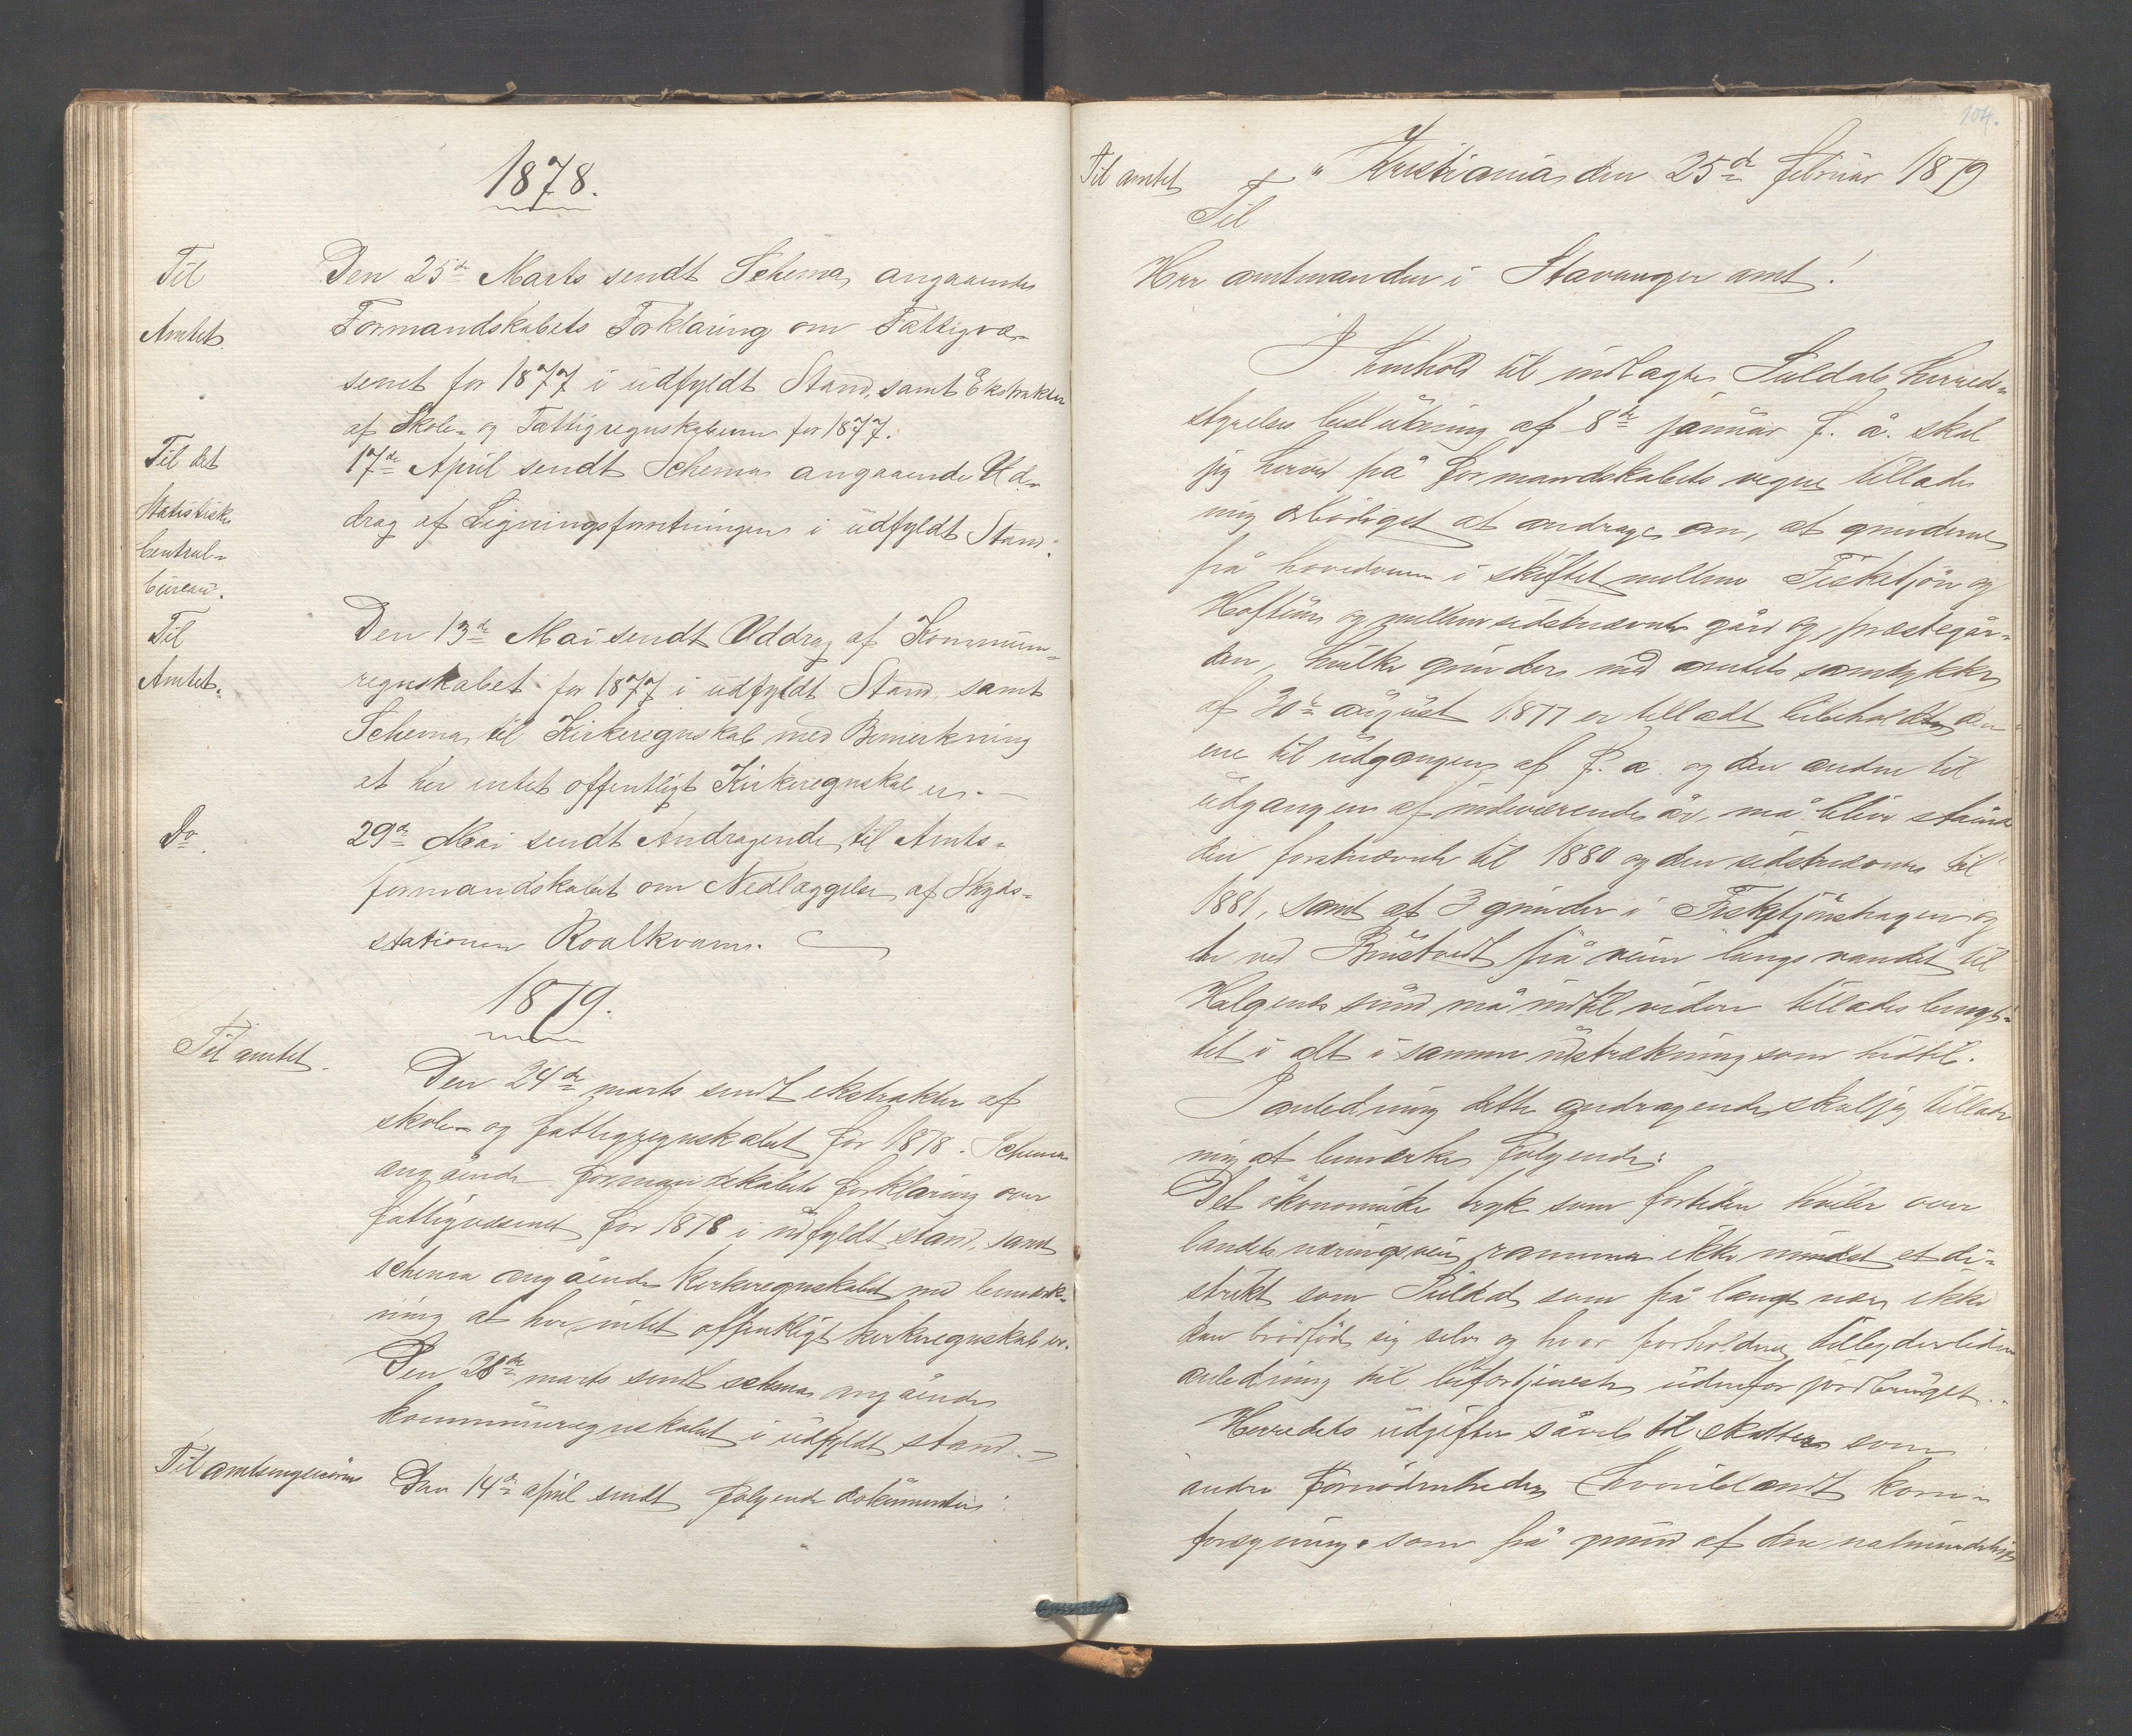 1878.
Til
Amtet.
Den 25de Marts sendt Schema angaaende
Formandskabets Forklaring om Fattigvæ-
senet for 1877 i udfyldt Stand, samt Ekstrakter
af Skole- og Fattigregnskaberne for 1877.
Til det
Statistiske
Central-
bureau.
17de April sendt Schema angaaende Ud-
drag af Ligningsforretningen i udfyldt Stand.
Til
Amtet.
Den 13de Mai sendt Uddrag af Kommune-
regnskabet for 1877 i udfyldt Stand, samt
Schema til Kirkeregnskab med Bemerkning
at her intet offentligt Kirkeregnskab er. —
Do.
29de Mai sendt Andragende til Amts-
formandskabet om Nedlæggelse af Skyds-
stationen Roalkvam.
1879.
Til amtet.
Den 24de marts sendt ekstrakter af
skole- og fattigregnskabet for 1878. Schema
angående formandskabets forklaring over
fattigvæsenet for 1878 i udfyldt stand, samt
schema angående kirkeregnskabet med bemærk-
ning at her intet offentligt kirkeregnskab er.
Den 28de marts sendt schema angående
kommuneregnskabet i udfyldt stand. —
Til amtsingeniøren
Den 14de april sendt følgende dokumenter:
104.
Til amtet
" Kristiania den 25de februar 1879
Til
Herr amtmanden i Stavanger amt!
I henhold til indlagte Suldals herreds-
styrelses beslutning af 8de januar f. å. skal
jeg herved på formandskabets vegne tillade
mig ærbødigst at andrage om, at grinderne
på hovedveien i skiftet mellem Fisketjøn og
Hoftun og mellem sidstnævnte gård og præstegår-
den, hvilke grinder med amtets samtykke
af 30te august 1877 er tilladt bibeholdt, den
ene til udgangen af f. a. og den anden til
udgangen af indeværende år, må blive stående
den førstnævnte til 1880 og den sidstnævnte til
1881, samt at 3 grinder i Fisketjønshagen og
to ved Brustveit på veien langs vandet til
Helgenes sund må indtil videre tillades benyt-
tet i alt i samme udstrækning som hidtil.
I anledning dette andragende skal jeg tillade
mig at bemærke følgende:
Det økonomiske tryk som fortiden hviler over
landets næringsveie, rammer ikke mindst et di-
strikt som Suldal, som på langt nær ikke
kan brødføde sig selv og hvor forholdene tilbyder liden
anledning til bifortjeneste udenfor jordbruget.
Herredets udgifter såvel til skatter som
andre fornødenheder hvoriblandt korn-
forsyning, som på grund af den ualmindelige